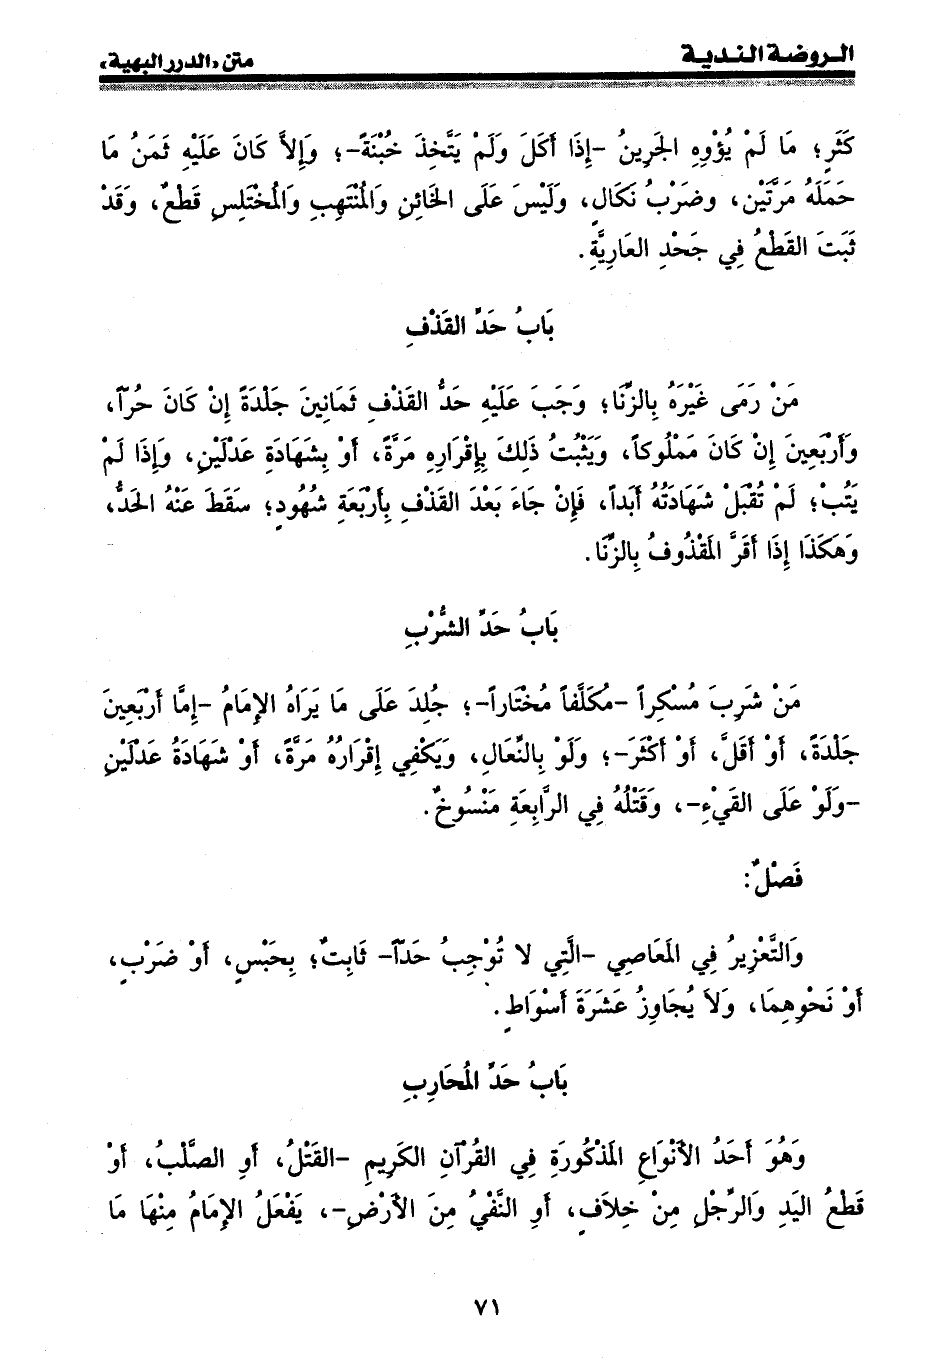 الروضة الندية
متن «الدرر البهية»
كَثَرٍ؛ مَا لَمْ يُؤْوِهِ الجَرِينُ -إِذَا أَكَلَ وَلَمْ يَتَّخِذَ خُبْنَةً-؛ وَإِلاَّ كَانَ عَلَيْهِ ثَمَنُ مَا
حَمَلَهُ مَرَّتَيْنِ، وضَرْبُ نَكَالٍ، وَلَيْسَ عَلَى الخَائِنِ وَالمُنْتَهِبِ وَالمُخْتَلِسِ قَطْعٌ، وَقَدْ
ثَبَتَ القَطْعُ فِي جَحْدِ العَارِيَّةِ.
بَابُ حَدِّ القَذْفِ
مَنْ رَمَى غَيْرَهُ بِالزِّنَا؛ وَجَبَ عَلَيْهِ حَدُّ القَذْفِ ثَمَانِينَ جَلْدَةً إِنْ كَانَ حُرّاً،
وَأَرْبَعِينَ إِنْ كَانَ مَمْلُوكاً، وَيَثْبُتُ ذَلِكَ بِإِقْرَارِهِ مَرَّةً، أَوْ بِشَهَادَةِ عَدْلَيْنِ، وَإِذَا لَمْ
يَتُبْ؛ لَمْ تُقْبَلْ شَهَادَتُهُ أَبَداً، فَإِنْ جَاءَ بَعْدَ القَذْفِ بِأَرْبَعَةِ شُهُودٍ؛ سَقَطَ عَنْهُ الحَدُّ،
وَهَكَذَا إِذَا أَقَرَّ المَقْذُوفُ بِالزِّنَا.
بَابُ حَدِّ الشُّرْبِ
مَنْ شَرِبَ مُسْكِراً -مُكَلَّفاً مُخْتَاراً-؛ جُلِدَ عَلَى مَا يَرَاهُ الإِمَامُ -إِمَّا أَرْبَعِينَ
جَلْدَةً، أَوْ أَقَلَّ، أَوْ أَكْثَرَ-؛ وَلَوْ بِالنِّعَالِ، وَيَكْفِي إِقْرَارُهُ مَرَّةً، أَوْ شَهَادَةُ عَدْلَيْنِ
-وَلَوْ عَلَى القَيْءِ-، وَقَتْلُهُ فِي الرَّابِعَةِ مَنْسُوخٌ.
فَصْلٌ:
وَالتَّعْزِيرُ فِي المَعَاصِي -الَّتِي لا تُوْجِبُ حَدّاً- ثَابِتٌ؛ بِحَبْسٍ، أَوْ ضَرْبٍ،
أَوْ نَحْوِهِمَا، وَلاَ يُجَاوِزُ عَشَرَةَ أَسْوَاطٍ.
بَابُ حَدِّ المُحَارِبِ
وَهُوَ أَحَدُ الأَنْوَاعِ المَذْكُورَةِ فِي القُرْآنِ الكَرِيمِ -القَتْلُ، أَوِ الصَّلْبُ، أَوْ
قَطْعُ اليَدِ وَالرِّجْلِ مِنْ خِلاَفٍ، أَوِ النَّفْيُ مِنَ الأَرْضِ-، يَفْعَلُ الإِمَامُ مِنْهَا مَا
٧١